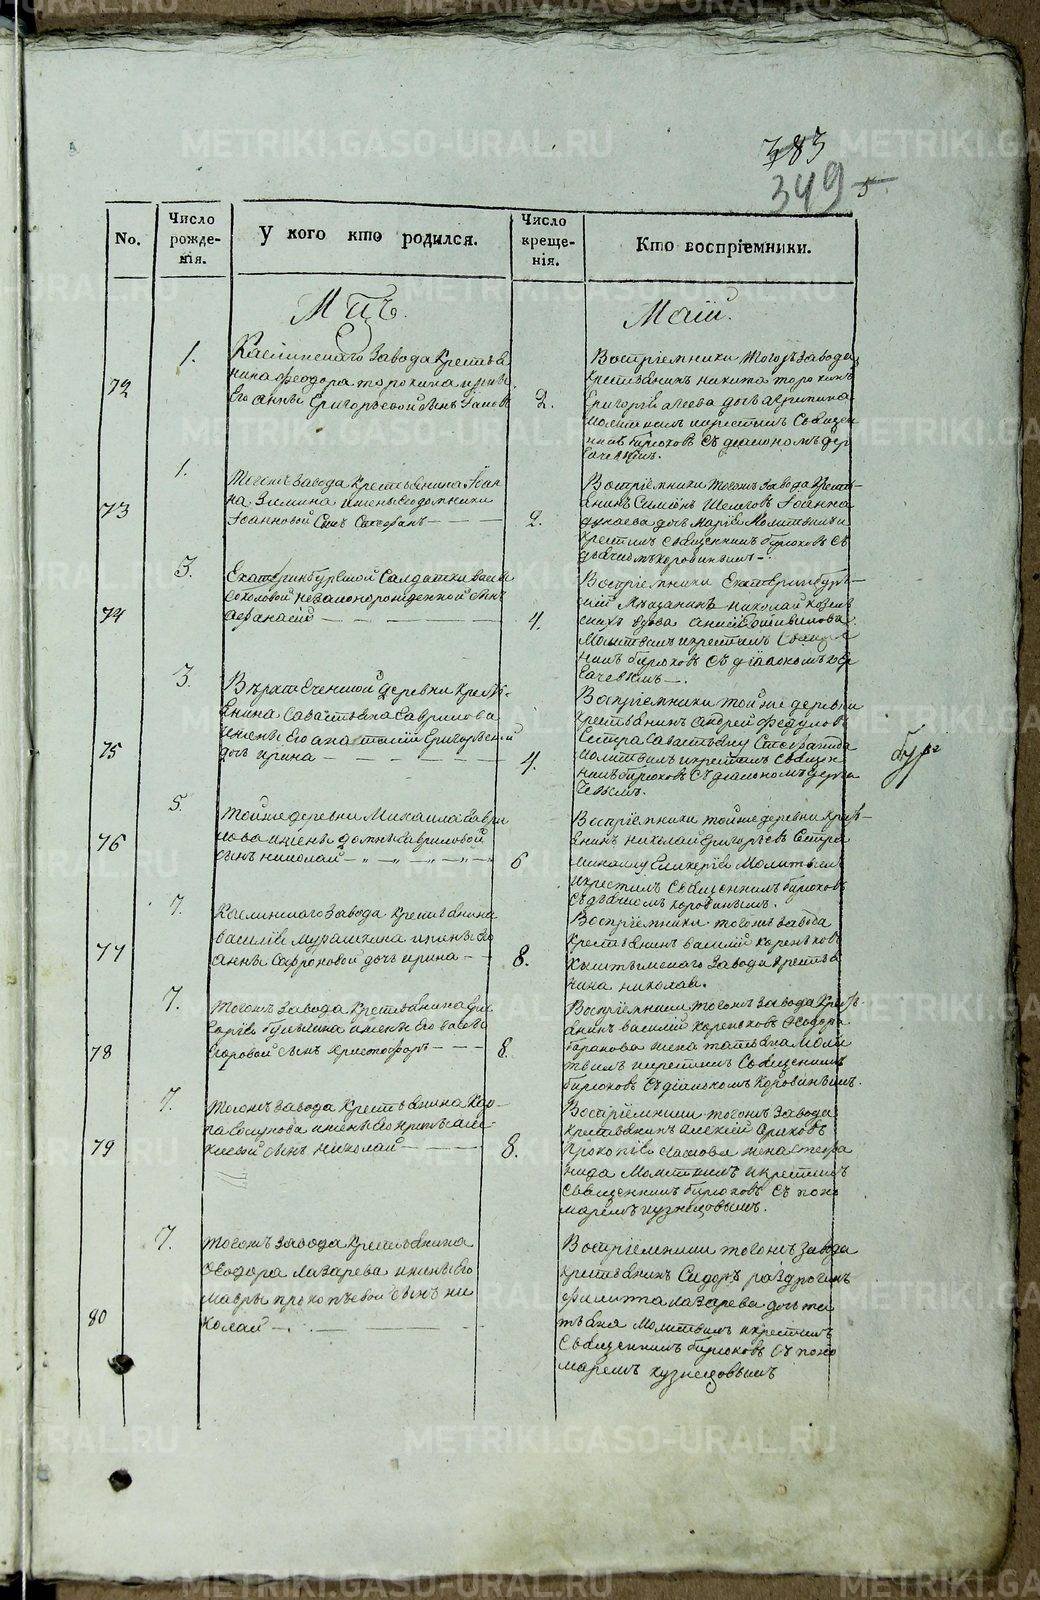 383
349
5
No.
Число рожде-нія.
У кого кто родился.
Число креще-нія.
Кто воспріемники.
Мцъ.
Маій.
72
1.
Каслинскаго завода Крестья
нина Феодора торокина и жены
Его анны Григорьевой сынъ
2.
Воспріемники Тогожъ завода
крестьянинъ никита торокинъ
Григорія дочь агрипина
молитвилъ и крестилъ Священ
никъ бирюковъ съ діакономъ дер
гачевымъ.
73
1.
тогожъ завода Крестьянина Іоан
на Зимина и жены его домники
Іоанновой Сынъ Стефанъ
2.
Воспріемники тогожъ завода Кресть-
янинъ Симіонъ Шелеговъ Іоанна
дунаева дочь Марія Молитвилъ и
крестилъ священникъ бирюковъ съ
дьячкомъ коровинымъ
74
3.
Екатеринбургской Салдатки
Соколовой незаконорожденной сынъ
афанасій
4.
Воспріемники Екатеринбург-
скій Мещанинъ николай
вдова
Молитвилъ и крестилъ Свящ
никъ бирюковъ съ діакономъ дер
гачевымъ.
75
3.
деревни кресть-
янина Савастьяна Гаврилова
и жены Его анастасіи Григорьевой
дочь ирина
4.
Воспріемники той же деревни
крестьянинъ андрей Федуловъ
Сестра Савастьяну Стефанида
Молитвилъ и крестилъ священ
никъ бирюковъ съ діакономъ дерга
чевымъ.
76
5.
той же деревни Михаила гаври
лова и жены гавриловой
сынъ николай
6
Воспріемники той же деревни Кресть-
янинъ николай Григорьевъ Сестра
михаилу Гликерія Молитвилъ
и крестилъ Священникъ бирюковъ
съ дьячкомъ коровинымъ.
77
7.
Каслинскаго завода крестьянина
василія Мурашкина и жены его
анны Сафроновой дочь ирина
8.
Воспріемники тогожъ завода
крестьянинъ василій кореньковъ
Кыштымскаго завода крестья
нина николая.
78
7.
тогожъ завода крестьянина гри
горія и жены его
Егоровой сынъ христофоръ
8.
Воспріемники тогожъ завода Кресть-
янинъ василій кореньковъ Феодора
баранова жена татьяна моли
твилъ и крестилъ Священникъ
бирюковъ съ діакономъ Коровинымъ.
79
7.
тогожъ завода Крестьянина Кар
па и жены его
сынъ николай
8.
Воспріемники тогожъ завода
крестьянинъ алексій
Прокопія жена Стефа
нида Молитвилъ и крестилъ
священникъ бирюковъ съ поно
маремъ кузнецовымъ.
80
7.
тогожъ завода Крестьянина
Феодора лазарева и жены его
мавры прокопьевой сынъ ни
колай
Воспріемники тогожъ завода
крестьянинъ Сидоръ раздрогинъ
филипа лазарева дочь та
тьяна Молитвилъ и крестилъ
Священникъ бирюковъ съ поно
маремъ кузнецовымъ
METRIKI.GASO-URAL.RU